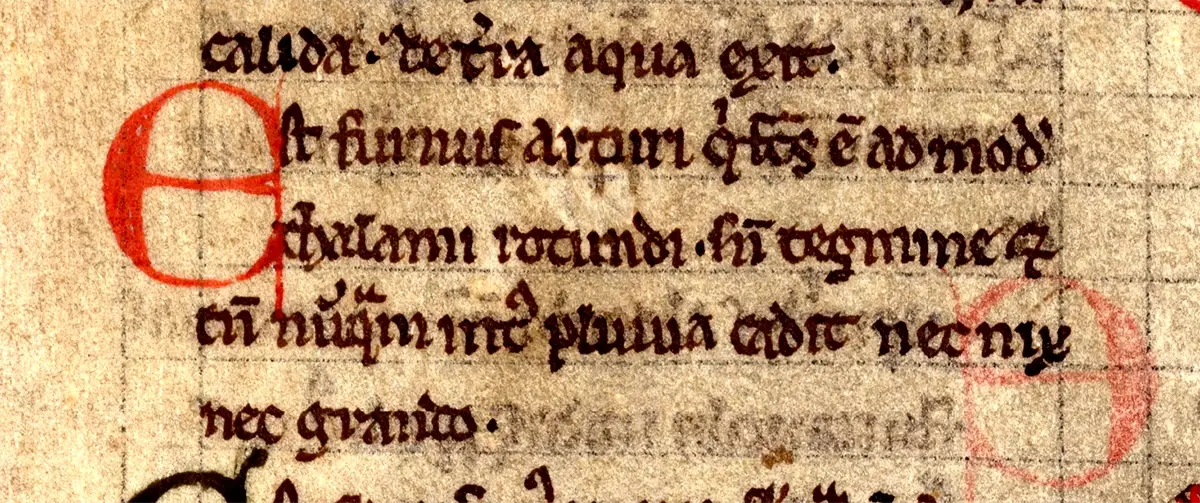 calida. de t'ra aqua exit.
Est furnus arturi q' fcs ē ad mod'
thalami rotundi. sn̄ tegmine ⁊
tn̄ nūqᵃm int᾽ pluuia cadit nec nix
nec grando.